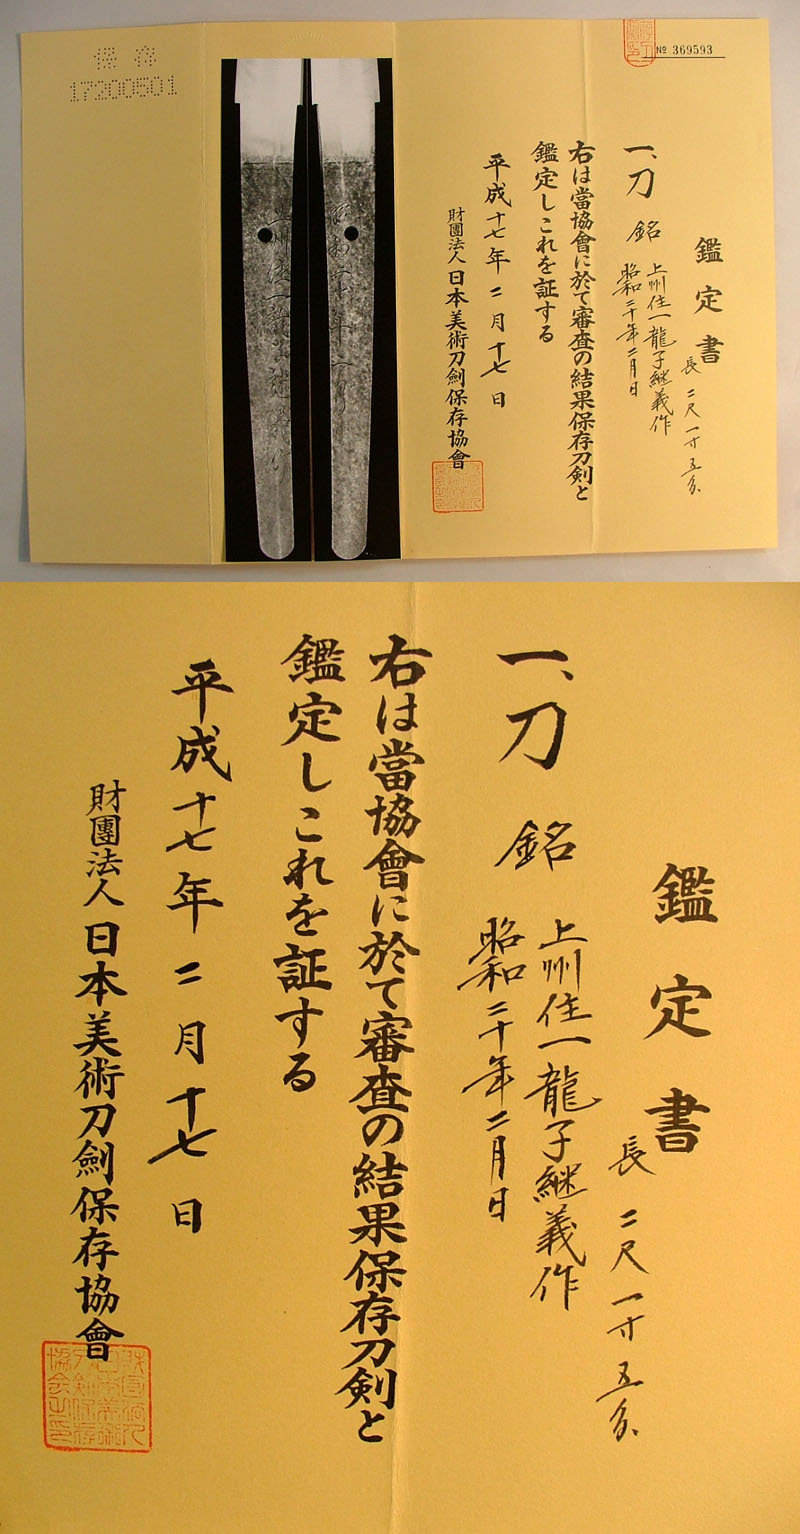 保存
17200601
№ 369593
鑑定書
長 二尺一寸五分
一、刀 銘 上州住一龍子継義作
昭和二十年二月日
右は當協會に於て審査の結果保存刀剣と
鑑定しこれを証する
平成十七年二月十七日
財團法人日本美術刀劍保存協會
上州住一龍子継義作
昭和二十年二月日
鑑定書
長 二尺一寸五分
一、刀 銘 上州住一龍子継義作
昭和二十年二月日
右は當協會に於て審査の結果保存刀剣と
鑑定しこれを証する
平成十七年二月十七日
財團法人日本美術刀劍保存協會